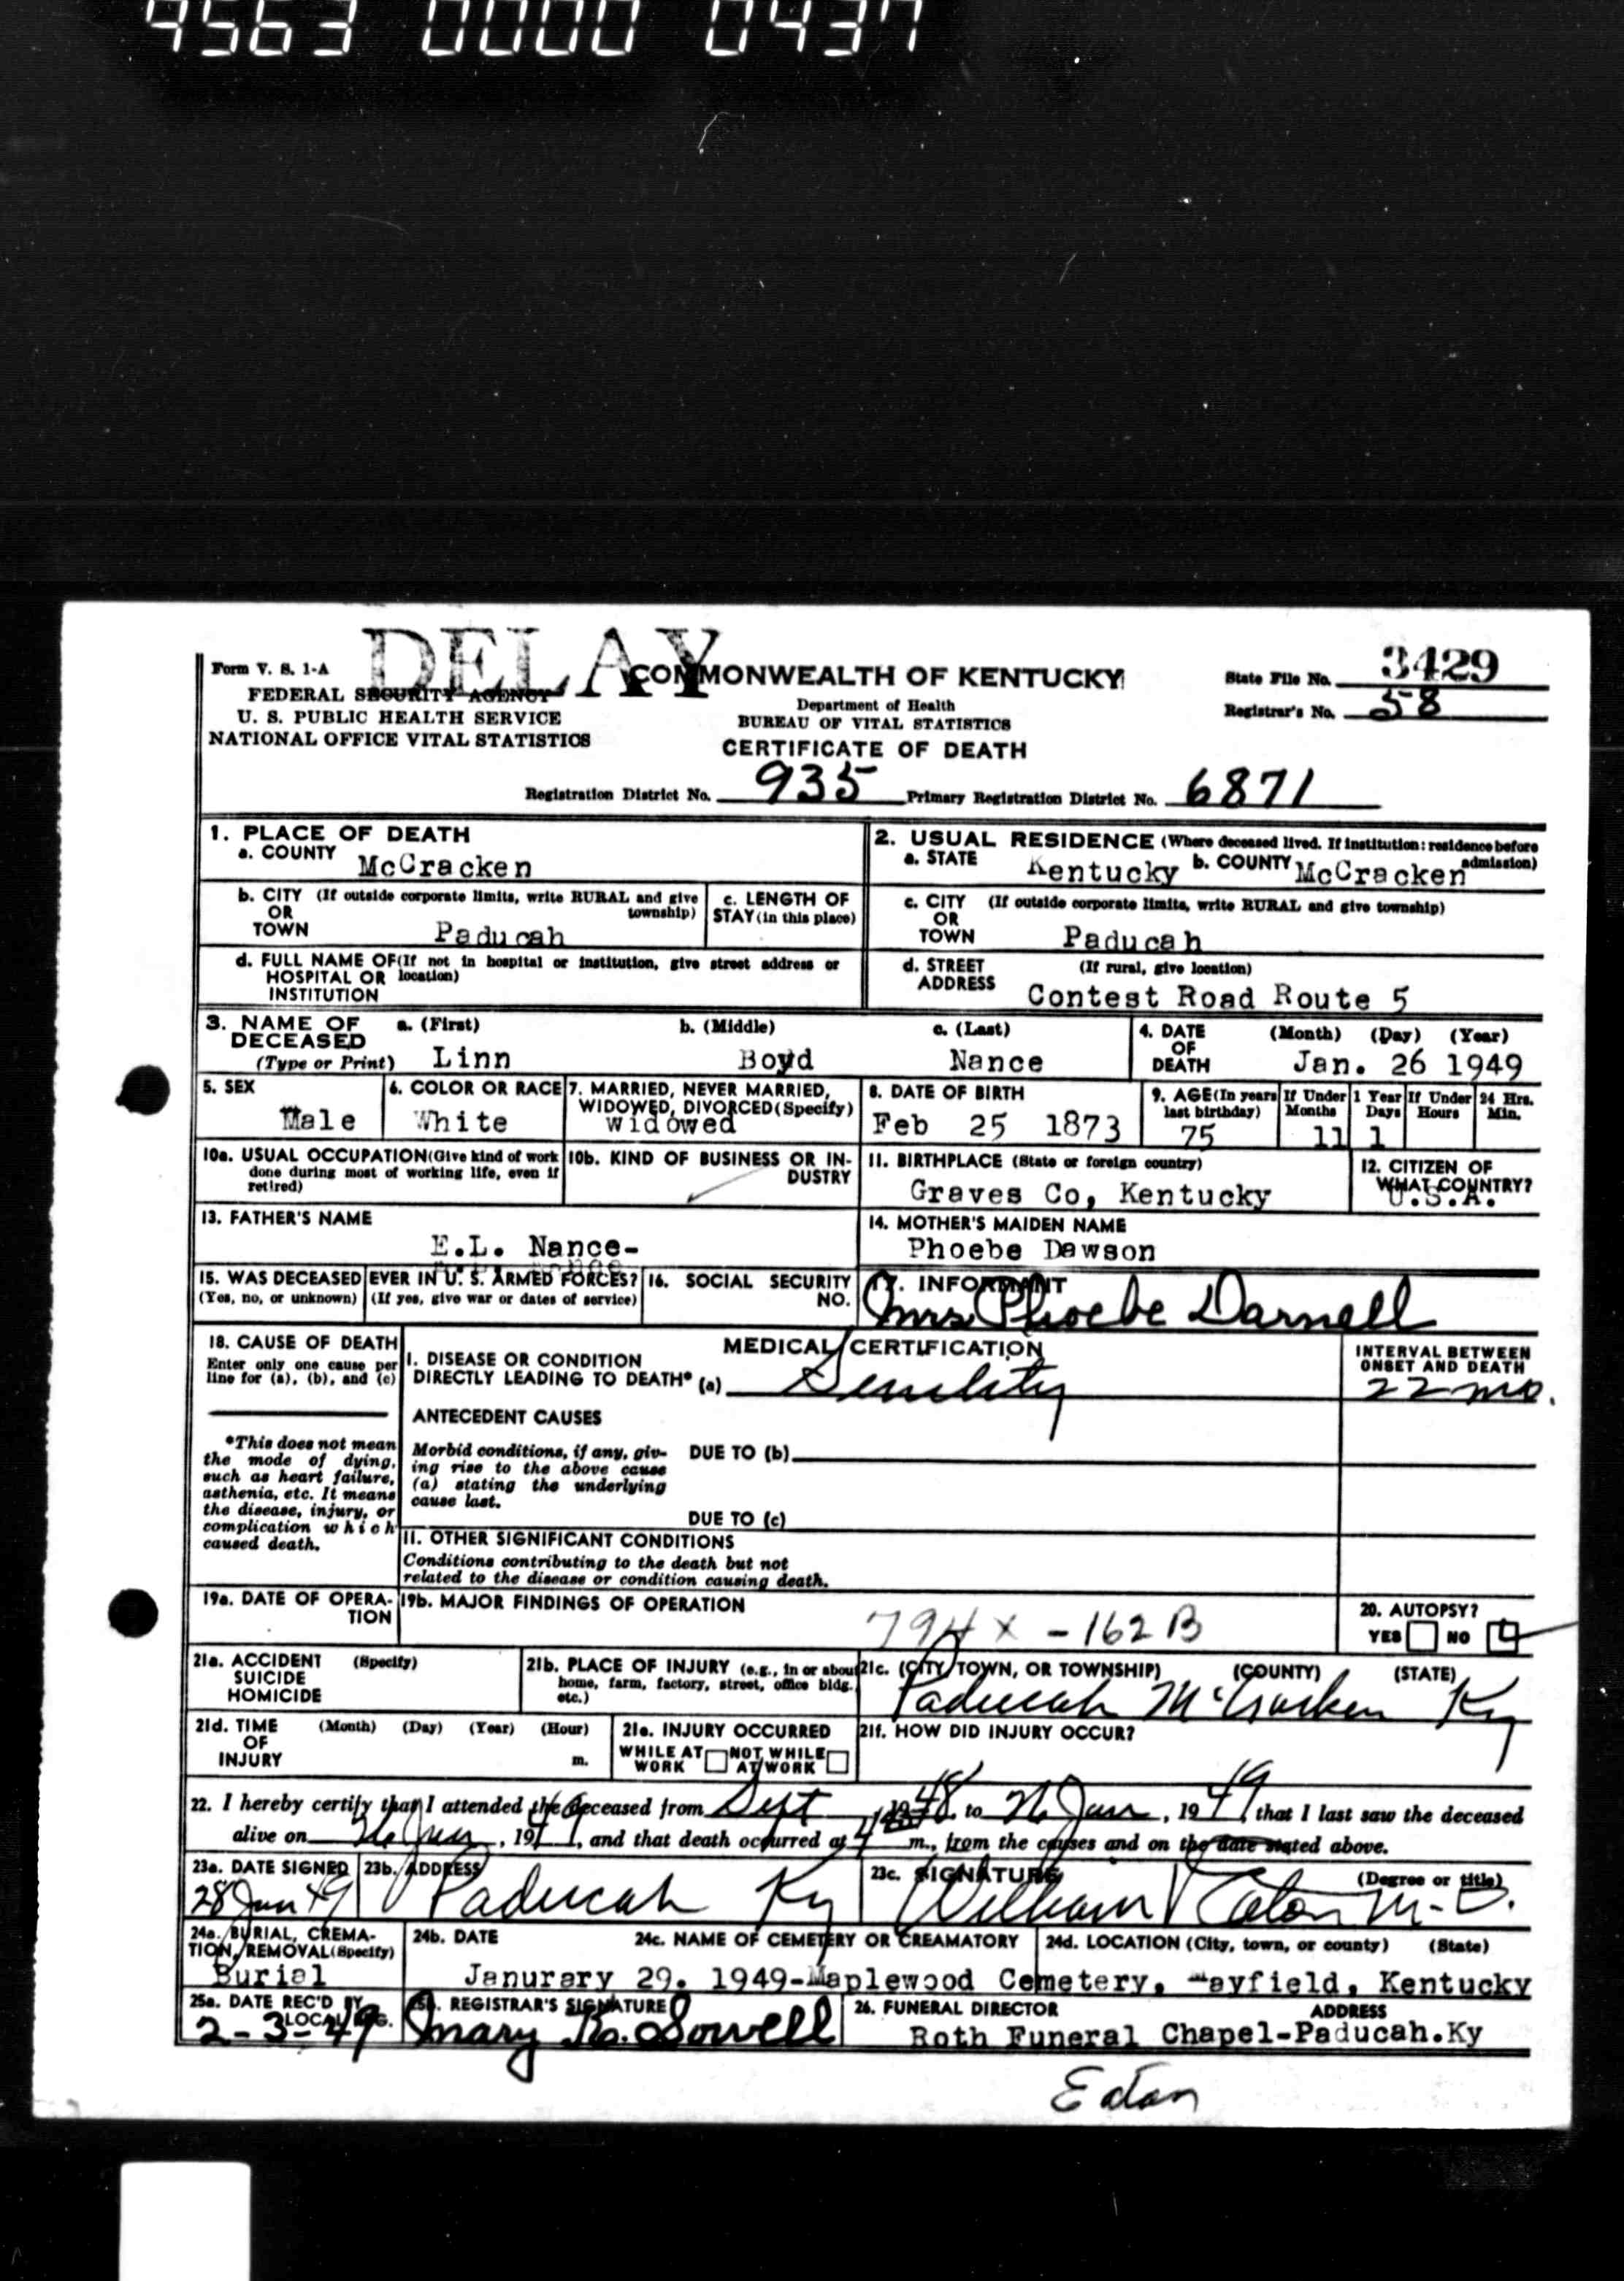 4563 0000 0437
DELAY
Form V. S. 1-A
FEDERAL SECURITY AGENCY
U. S. PUBLIC HEALTH SERVICE
NATIONAL OFFICE VITAL STATISTICS
COMMONWEALTH OF KENTUCKY
Department of Health
BUREAU OF VITAL STATISTICS
CERTIFICATE OF DEATH
State File No. 3429
Registrar's No. 58
Registration District No. 935 Primary Registration District No. 6871
1. PLACE OF DEATH
a. COUNTY McCracken
2. USUAL RESIDENCE (Where deceased lived. If institution: residence before admission)
a. STATE Kentucky b. COUNTY McCracken
b. CITY (If outside corporate limits, write RURAL and give township)
OR
TOWN Paducah
c. LENGTH OF STAY (in this place)
c. CITY (If outside corporate limits, write RURAL and give township)
OR
TOWN Paducah
d. FULL NAME OF (If not in hospital or institution, give street address or location)
HOSPITAL OR
INSTITUTION
d. STREET (If rural, give location)
ADDRESS Contest Road Route 5
3. NAME OF DECEASED (Type or Print)
a. (First) Linn
b. (Middle) Boyd
c. (Last) Nance
4. DATE OF DEATH (Month) (Day) (Year)
Jan. 26 1949
5. SEX
Male
6. COLOR OR RACE
White
7. MARRIED, NEVER MARRIED, WIDOWED, DIVORCED (Specify)
Widowed
8. DATE OF BIRTH
Feb 25 1873
9. AGE (In years last birthday)
75
If Under 1 Year
Months Days
11 1
If Under 24 Hrs.
Hours Min.
10a. USUAL OCCUPATION (Give kind of work done during most of working life, even if retired)
10b. KIND OF BUSINESS OR INDUSTRY
11. BIRTHPLACE (State or foreign country)
Graves Co, Kentucky
12. CITIZEN OF WHAT COUNTRY?
U.S.A.
13. FATHER'S NAME
E.L. Nance-
14. MOTHER'S MAIDEN NAME
Phoebe Dawson
15. WAS DECEASED EVER IN U. S. ARMED FORCES?
(Yes, no, or unknown) (If yes, give war or dates of service)
16. SOCIAL SECURITY NO.
17. INFORMANT
Mrs Phoebe Darnell
18. CAUSE OF DEATH
Enter only one cause per line for (a), (b), and (c)
MEDICAL CERTIFICATION
I. DISEASE OR CONDITION
DIRECTLY LEADING TO DEATH* (a) Senility
INTERVAL BETWEEN ONSET AND DEATH
22 mo.
ANTECEDENT CAUSES
*This does not mean the mode of dying, such as heart failure, asthenia, etc. It means the disease, injury, or complication which caused death.
Morbid conditions, if any, giving rise to the above cause (a) stating the underlying cause last.
DUE TO (b)
DUE TO (c)
II. OTHER SIGNIFICANT CONDITIONS
Conditions contributing to the death but not related to the disease or condition causing death.
19a. DATE OF OPERATION
19b. MAJOR FINDINGS OF OPERATION
794X - 162 B
20. AUTOPSY?
YES NO
21a. ACCIDENT (Specify)
SUICIDE
HOMICIDE
21b. PLACE OF INJURY (e.g., in or about home, farm, factory, street, office bldg. etc.)
21c. (CITY, TOWN, OR TOWNSHIP) (COUNTY) (STATE)
Paducah McCracken Ky
21d. TIME OF INJURY (Month) (Day) (Year) (Hour) m.
21e. INJURY OCCURRED
WHILE AT WORK NOT WHILE AT WORK
21f. HOW DID INJURY OCCUR?
22. I hereby certify that I attended the deceased from Sept 1948, to 26 Jan, 1949, that I last saw the deceased
alive on 26 Jan, 1949, and that death occurred at 4 m., from the causes and on the date stated above.
23a. DATE SIGNED
28 Jan 49
23b. ADDRESS
Paducah Ky
23c. SIGNATURE (Degree or title)
William Eaton M.D.
24a. BURIAL, CREMATION, REMOVAL (Specify)
Burial
24b. DATE 24c. NAME OF CEMETERY OR CREAMATORY 24d. LOCATION (City, town, or county) (State)
Janurary 29. 1949-Maplewood Cemetery, Mayfield, Kentucky
25a. DATE REC'D BY LOCAL REG.
2-3-49
25b. REGISTRAR'S SIGNATURE
Mary K. Sowell
26. FUNERAL DIRECTOR ADDRESS
Roth Funeral Chapel-Paducah.Ky
Eaton